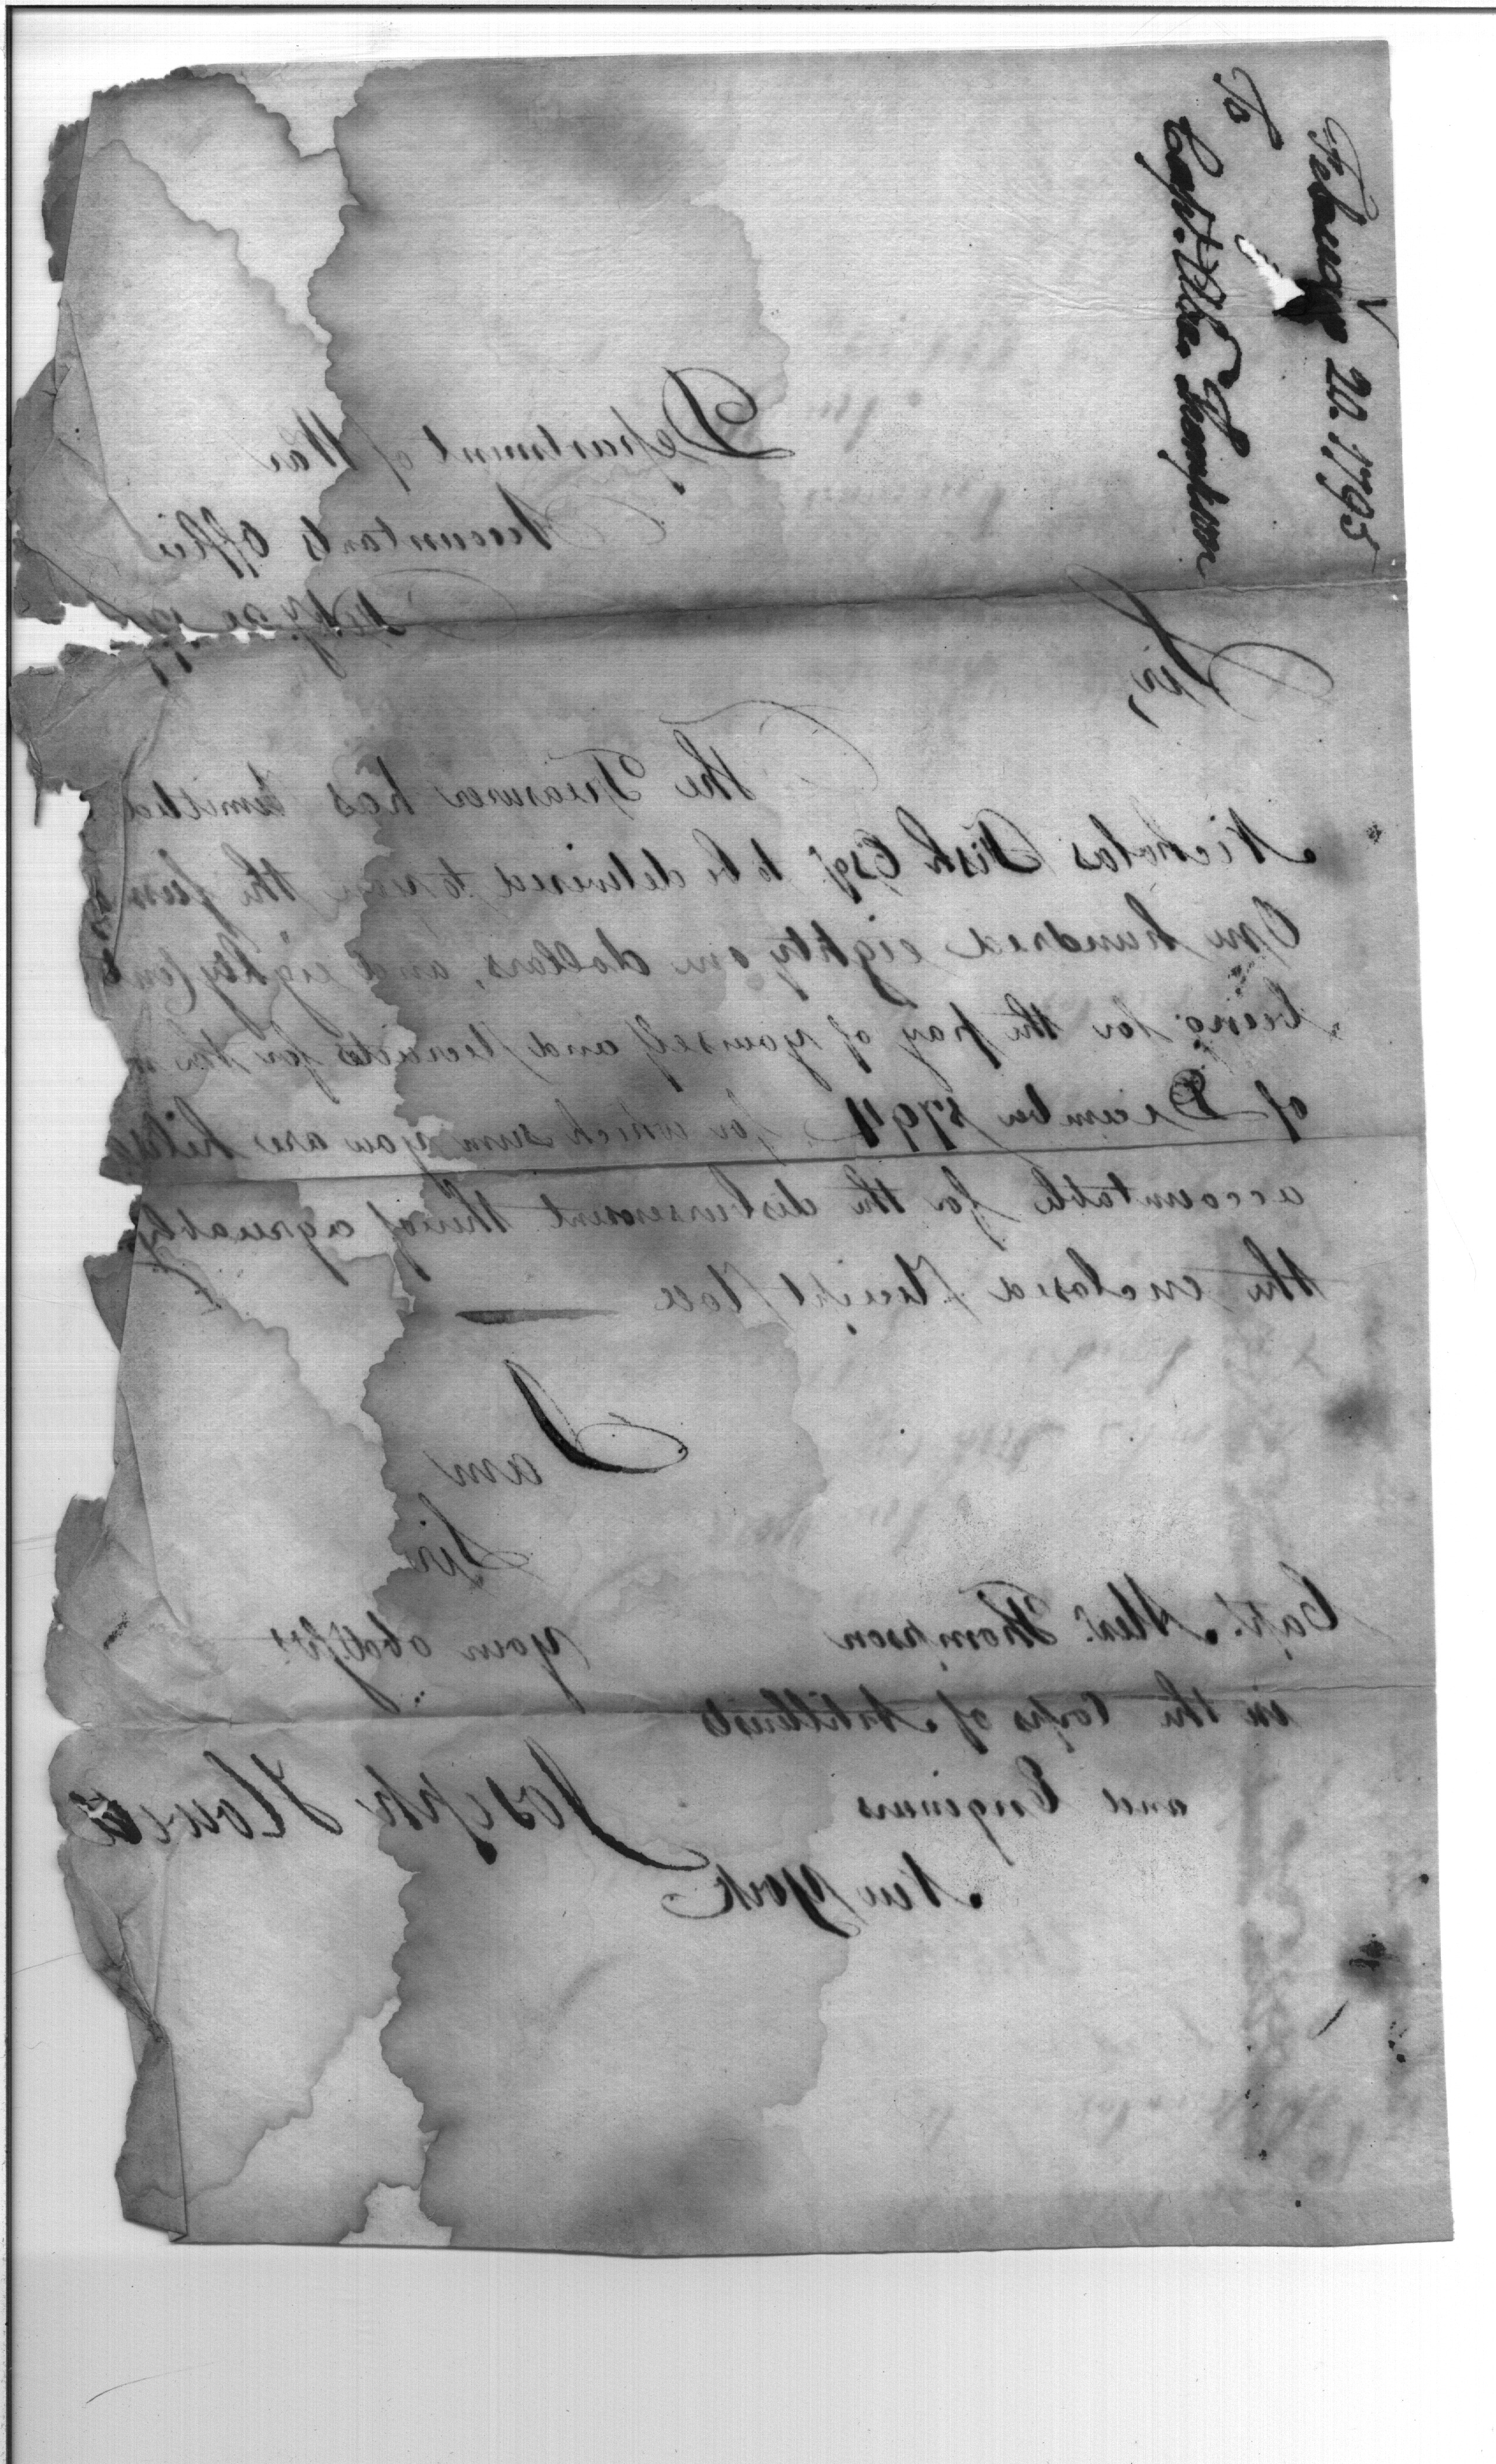 February 20. 1795
To
Capt. Alexr. Thompson
Department of War
Accountants Office
Feby. 20
Sir,
The Treasurer has remitted
Nicholas Fish Esqr. to be delivered to you the sum
One hundred eighty one dollars, and eighty Cents
being for the pay of yourself and Recruits for the
of December 1794 for which sum you are held
accountable for the disbursement thereof agreeably
the enclosed Receipt Roll
I am
Sir
your obdt. Servt.
Capt. Alexr. Thompson
in the Corps of Artillerists
and Engineers
New York
Joseph Howell